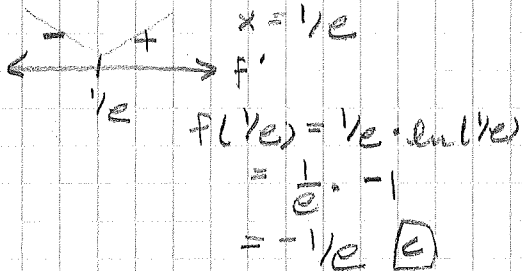 x = 1/e
- +
f'
1/e
f(1/e) = 1/e · ln(1/e)
= 1/e · -1
= -1/e C